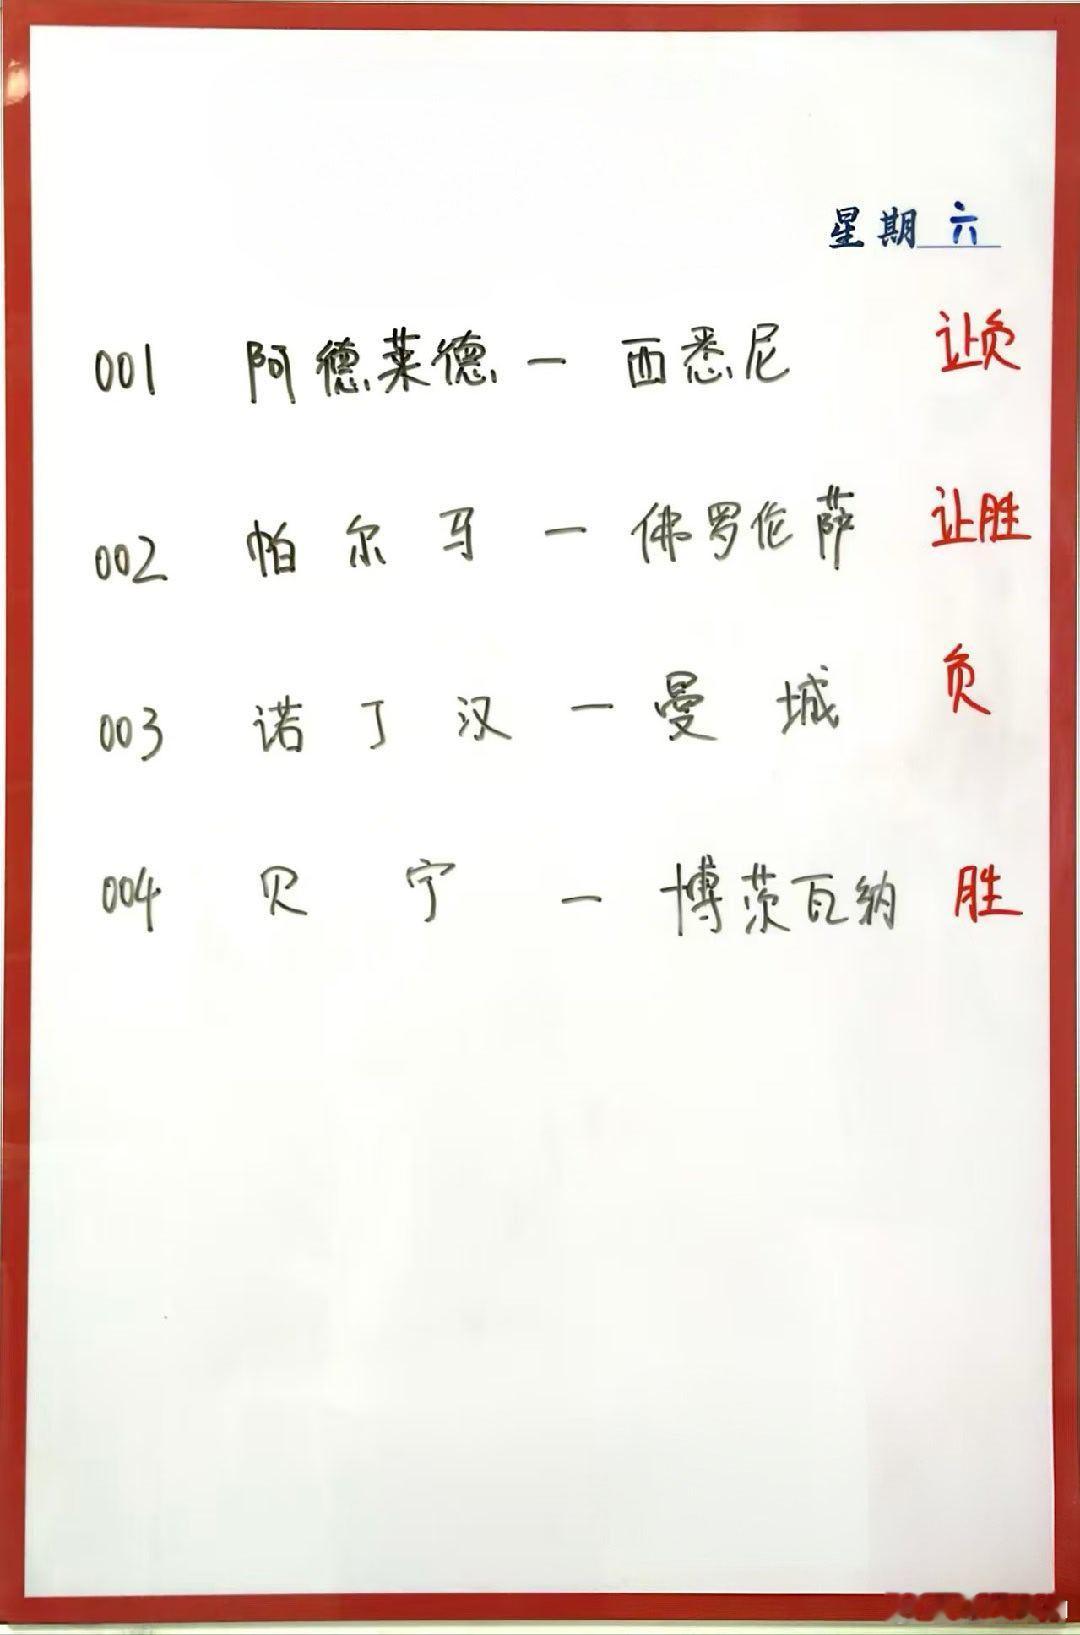 星期六
001 阿德莱德 — 西悉尼 让负
002 帕尔马 — 佛罗伦萨 让胜
003 诺丁汉 — 曼城 负
004 贝宁 — 博茨瓦纳 胜